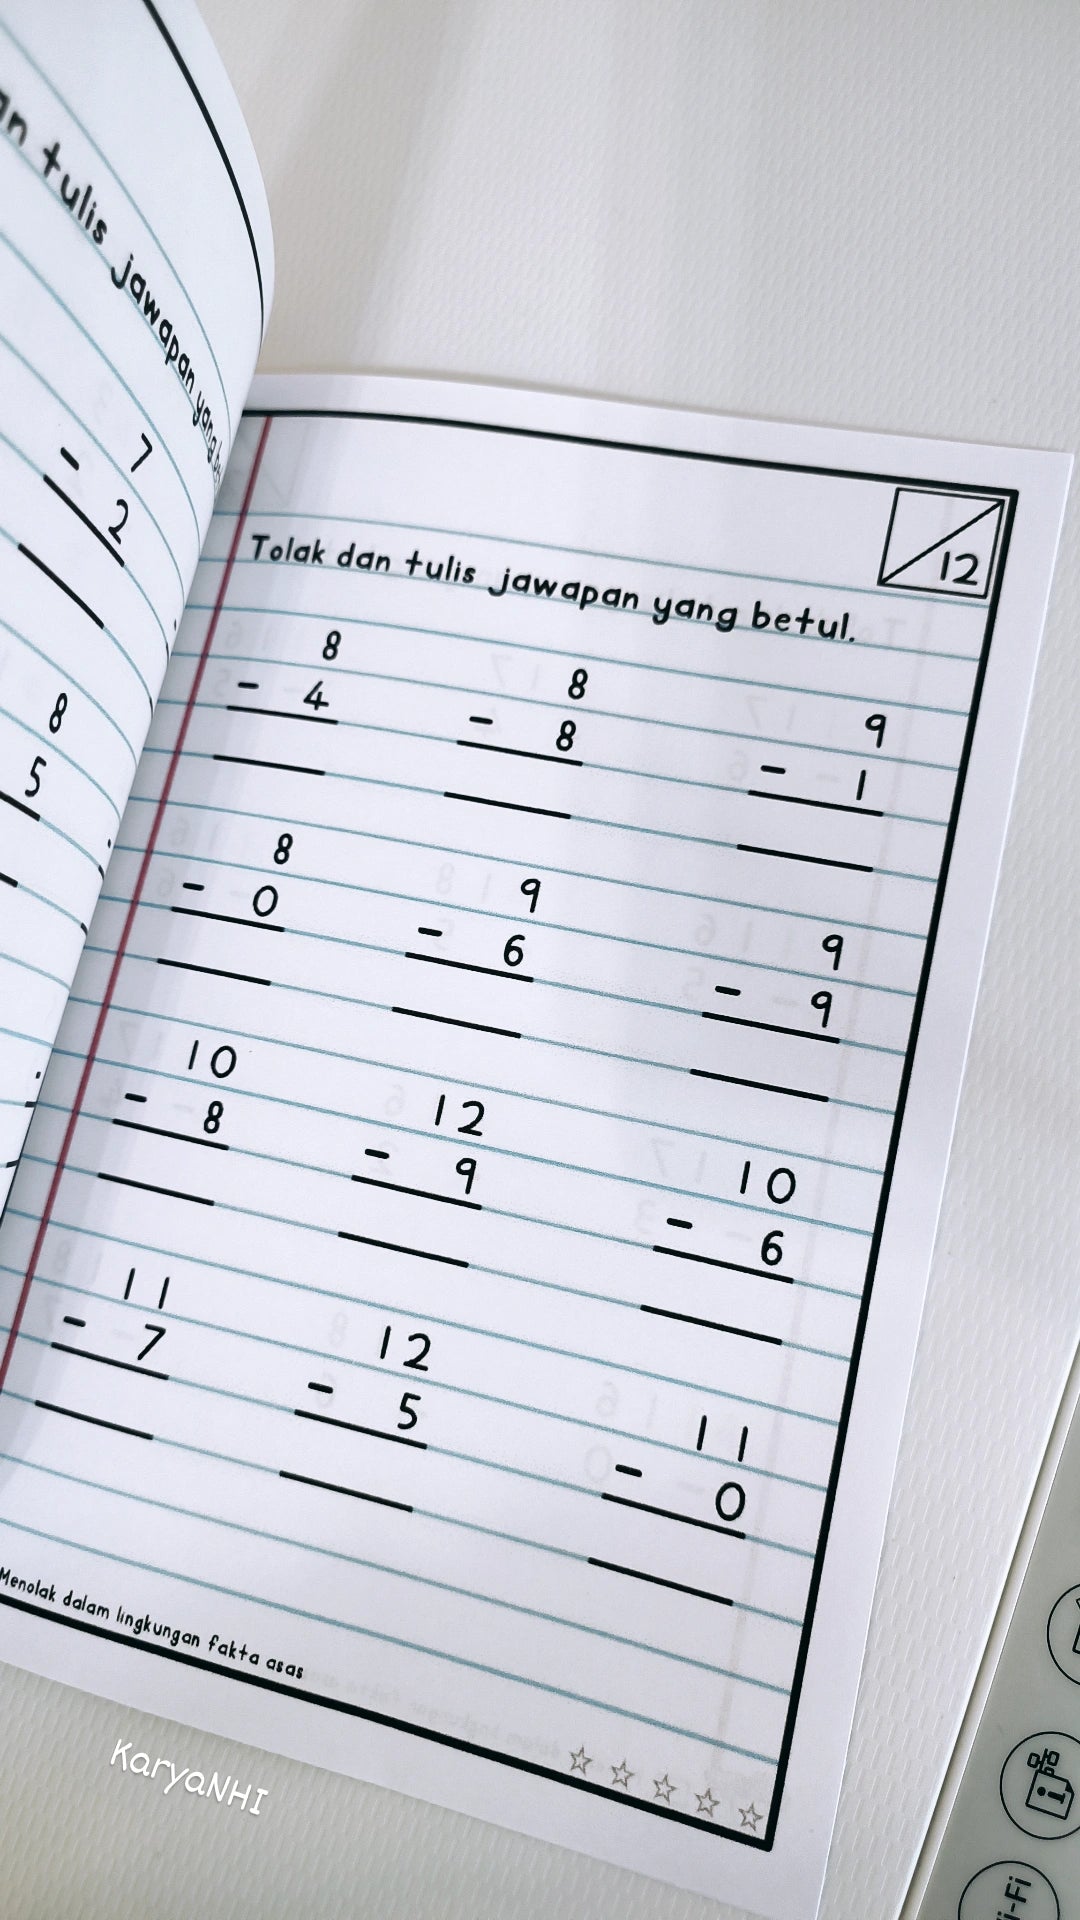 an tulis jawapan yang
7
- 2
8
5
12
Tolak dan tulis jawapan yang betul.
8 8 9
- 4 - 8 - 1
8 9 9
- 0 - 6 - 9
10 12 10
- 8 - 9 - 6
11 12 11
- 7 - 5 - 0
Menolak dalam lingkungan fakta asas
KaryaNHI
i-Fi